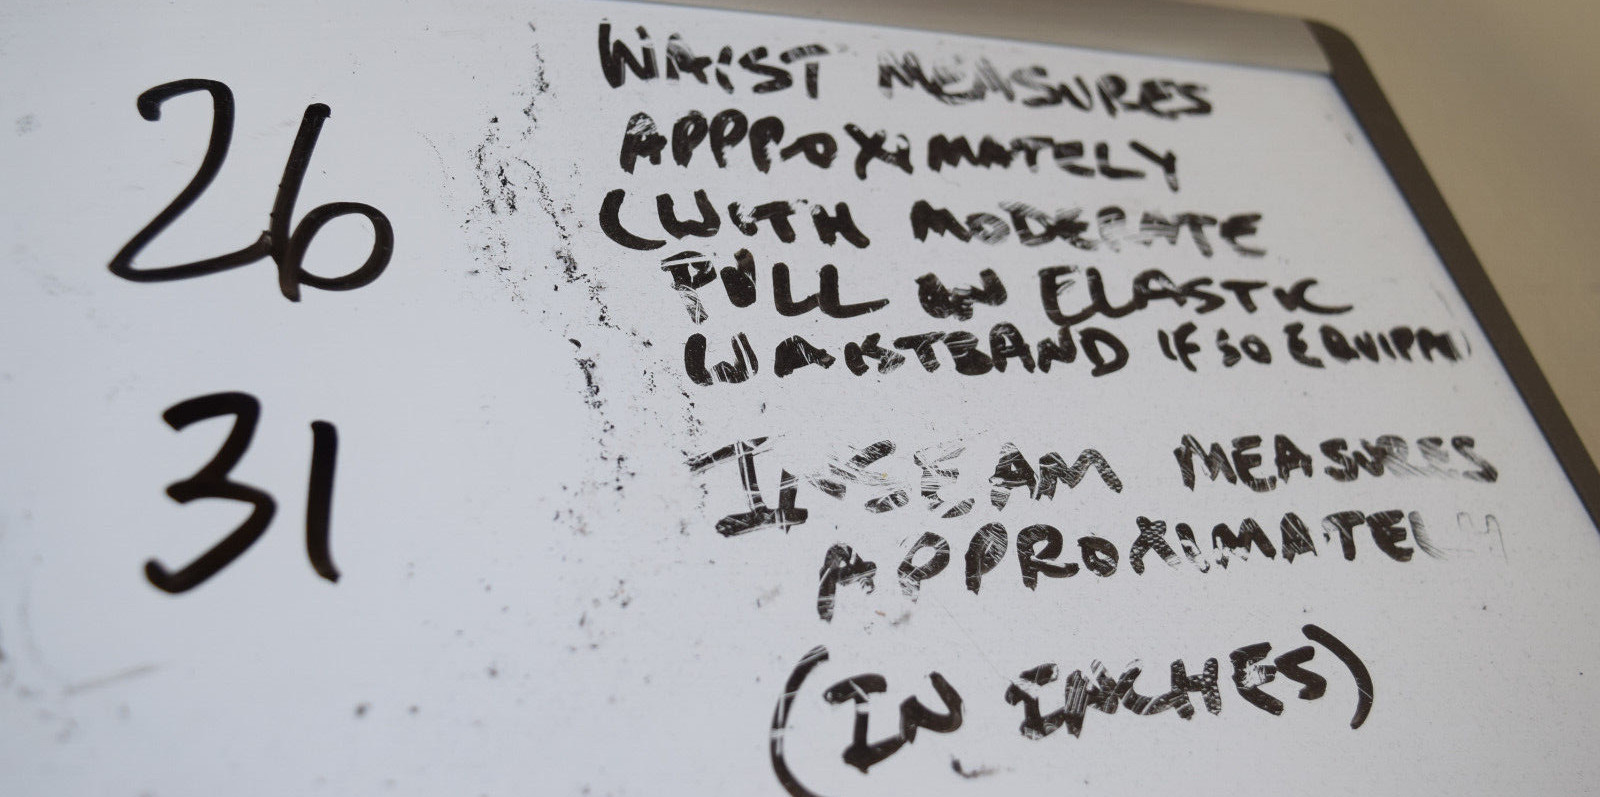 26
WAIST MEASURES
APPPROXIMATELY
(WITH MODERATE
PULL ON ELASTIC
WAISTBAND IF SO EQUIPPED)
31
INSEAM MEASURES
APPROXIMATELY
(IN INCHES)